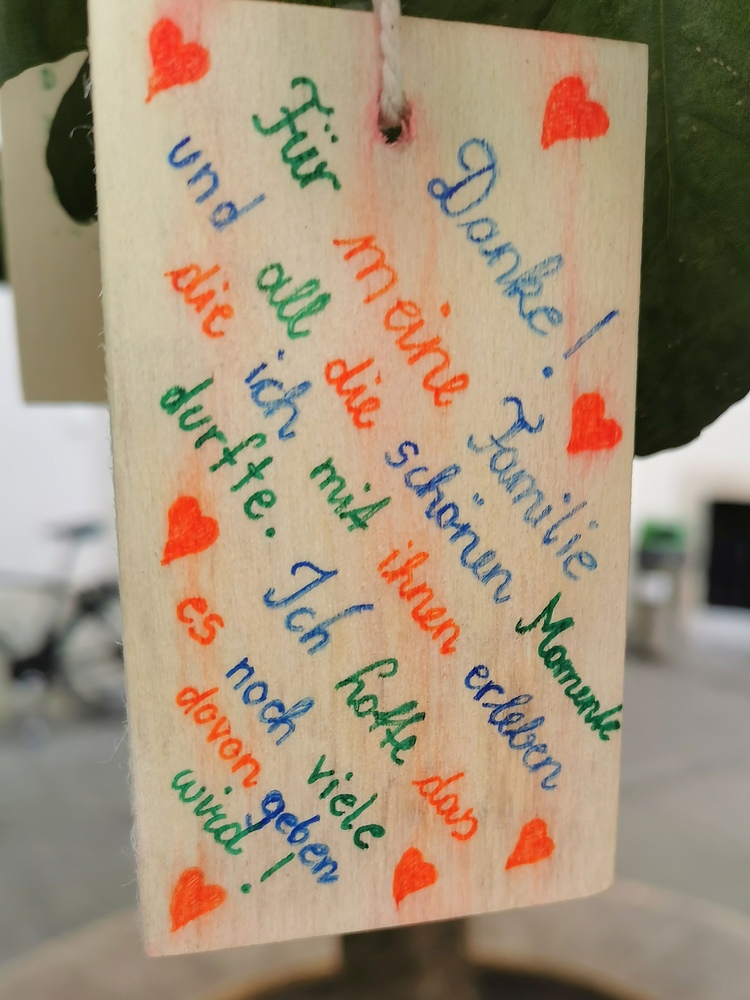 Danke!
Für meine Familie
und all die schönen Momente
die ich mit ihnen erleben
durfte.
Ich hoffe das
es noch viele
davon geben
wird!